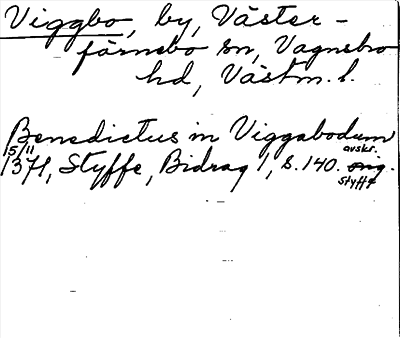 Viggbo, by, Väster-
färnebo sn, Vagnsbro
hd, Västm. l.
Benedictus in Viggabodum
5/11 avskr.
1371, Styffe, Bidrag 1, s. 140. orig.
Styffe